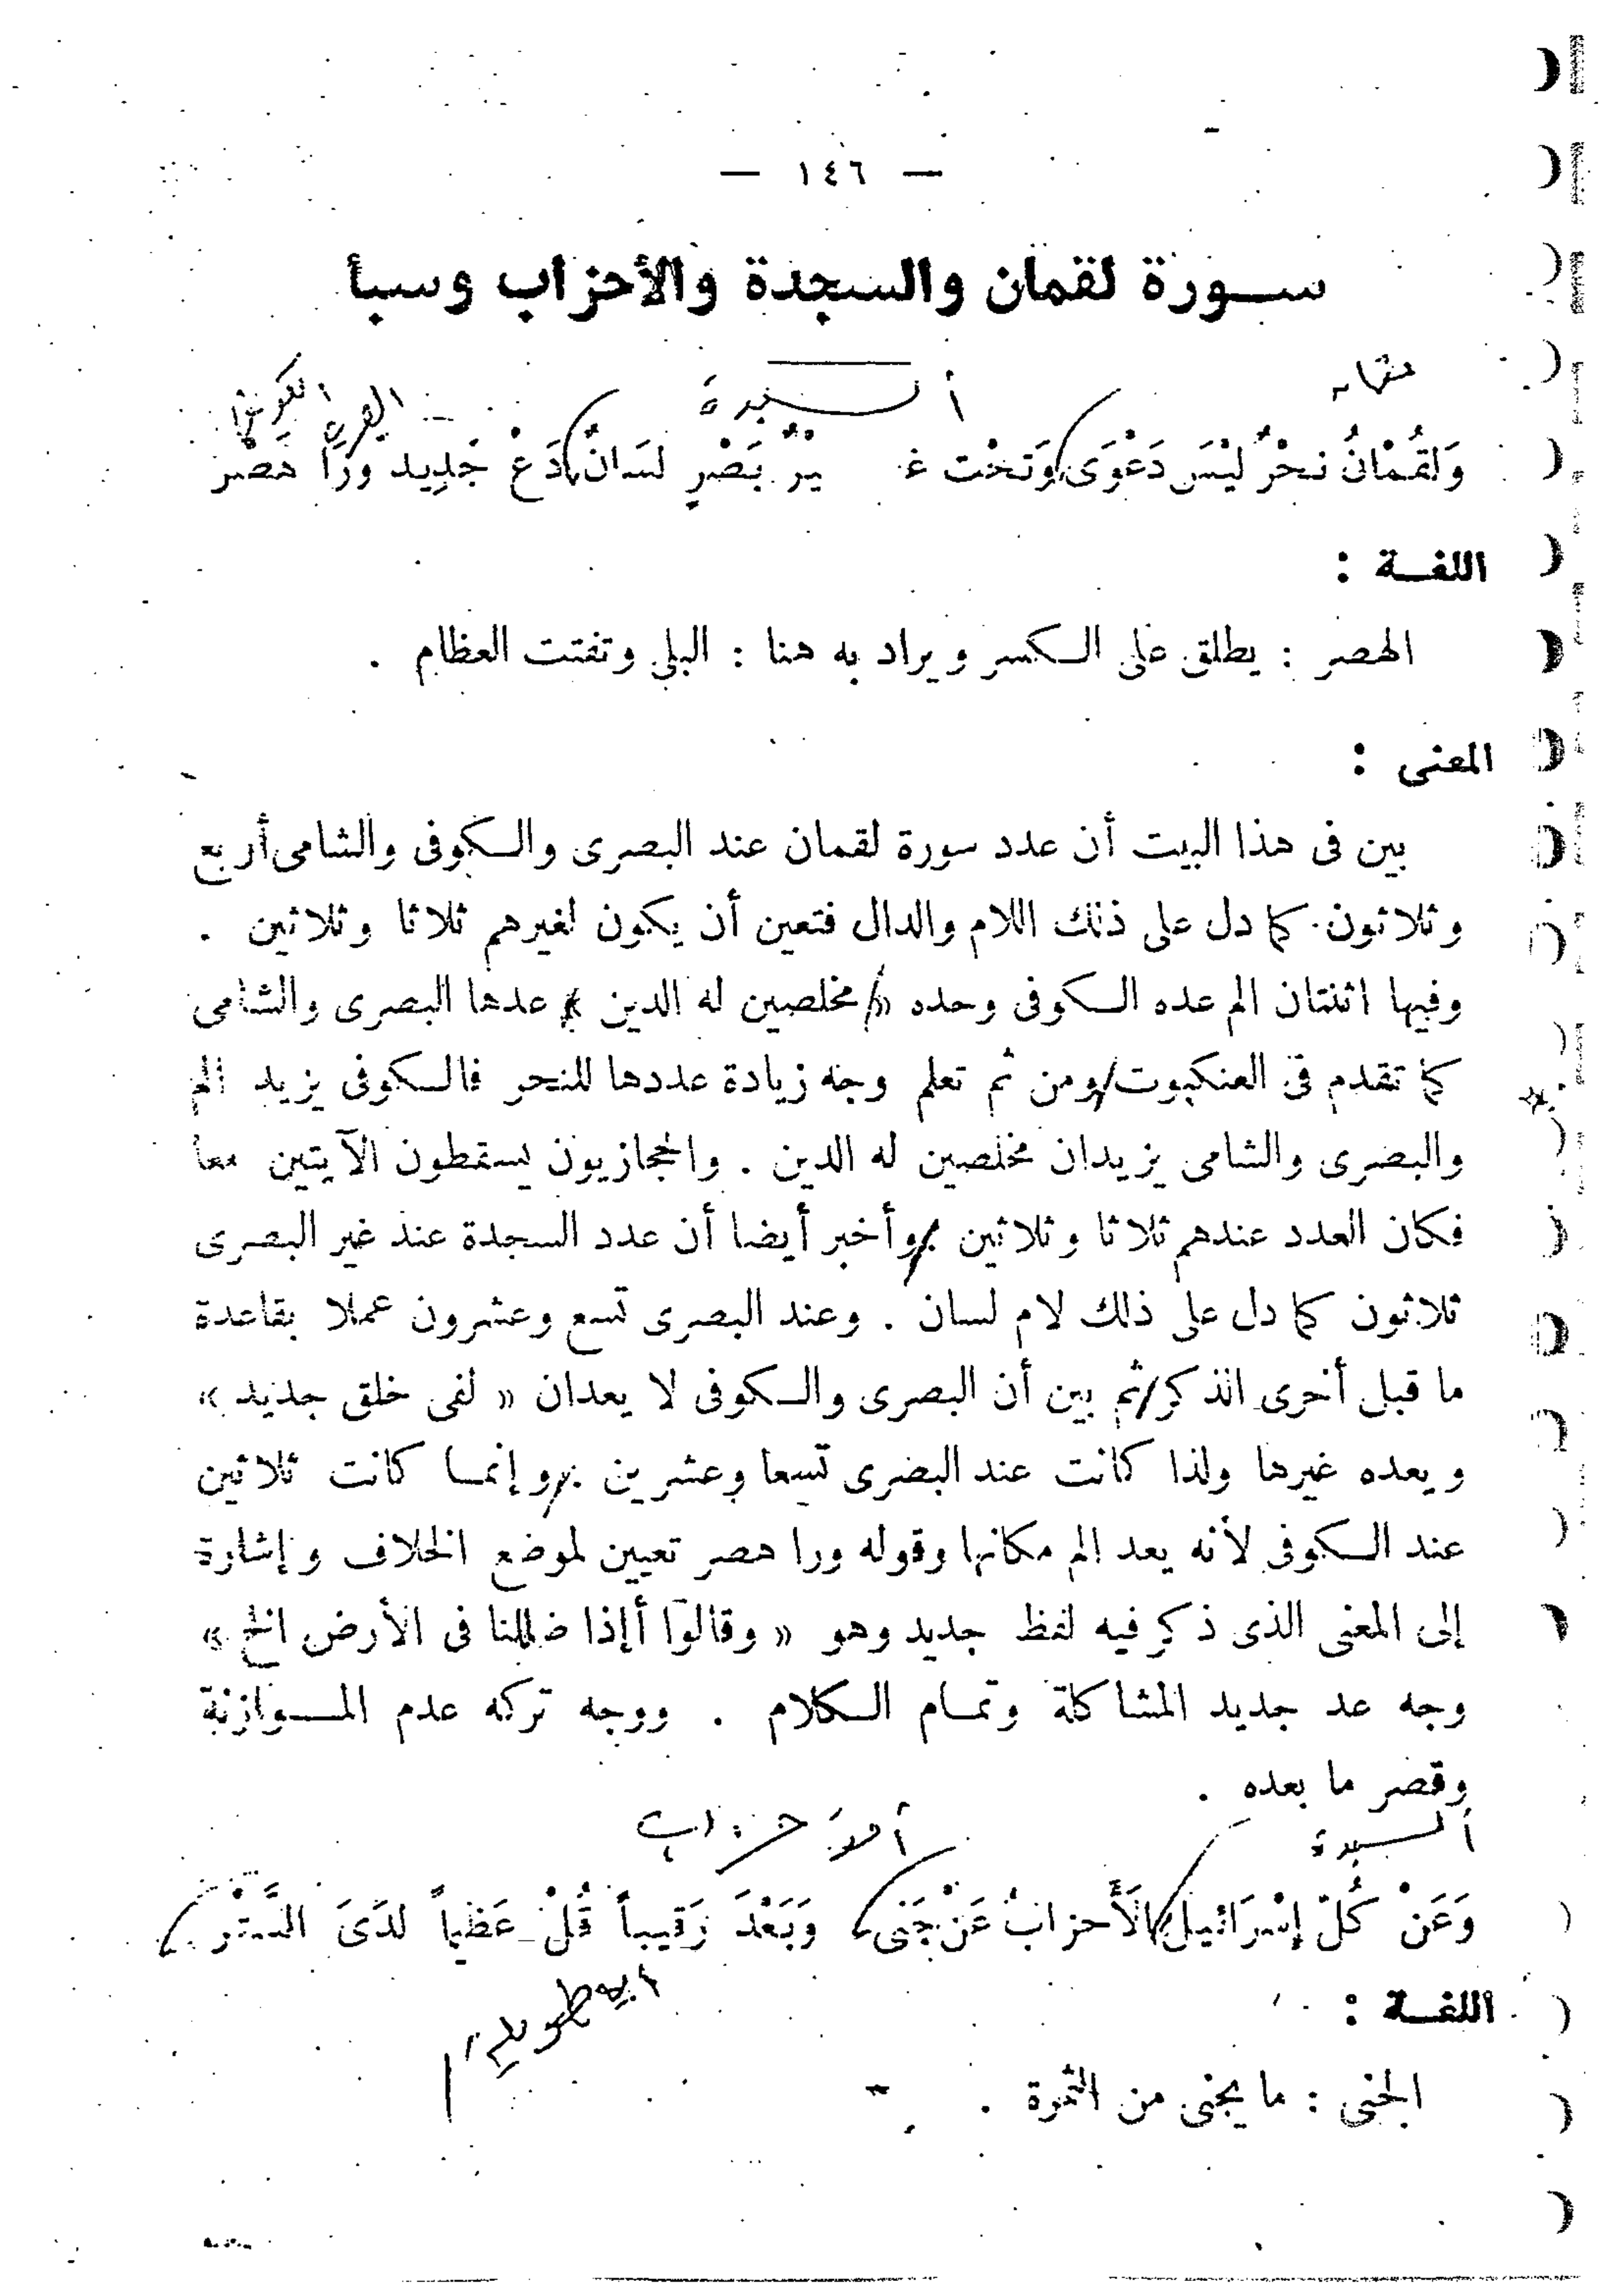 — ١٤٦ —
سـورة لقمان والسجدة والأحزاب وسبأ
السجدة
وَلقُمْانُ نحْرٌ ليْسَ دَعْوَى وَتحْت غـ يْرُ بَصْرٍ لسَانٌ دَعْ جَدِيد ورَا هَصْر
اللغـة :
الهصر : يطلق على الـكسر ويراد به هنا : البلى وتفتت العظام .
المعنى :
بين فى هذا البيت أن عدد سورة لقمان عند البصرى والـكوفى والشامى أربع
وثلاثون كما دل على ذلك اللام والدال فتعين أن يكون لغيرهم ثلاثا وثلاثين .
وفيها اثنتان الم عده الـكوفى وحده « مخلصين له الدين » عدها البصرى والشامى
كما تقدم فى العنكبوت ومن ثم تعلم وجه زيادة عددها للنحر فالـكوفى يزيد الم
والبصرى والشامى يزيدان مخلصين له الدين . والحجازيون يسقطون الآيتين معا
فكان العدد عندهم ثلاثا وثلاثين . وأخبر أيضا أن عدد السجدة عند غير البصرى
ثلاثون كما دل على ذلك لام لسان . وعند البصرى تسع وعشرون عملا بقاعدة
ما قبل أخرى الذكر ثم بين أن البصرى والـكوفى لا يعدان « لفى خلق جديد »
ويعده غيرها ولذا كانت عند البصرى تسعا وعشرين . وإنمـا كانت ثلاثين
عند الـكوفى لأنه يعد الم مكانها وقوله ورا هصر تعيين لموضع الخلاف وإشارة
إلى المعنى الذى ذكر فيه لفظ جديد وهو « وقالوا أإذا ضللنا فى الأرض الخ »
وجه عد جديد المشاكلة وتمـام الـكلام . ووجه تركه عدم المـوازنة
وقصر ما بعده .
السجدة الأحزاب
وَعَنْ كُلّ إسْرَائيل الَأَحزابُ عَنْ جَنى وَبَعْدَ رَقيباً قُلْ عَظيماً لدَىَ السَّتْر
اللغـة :
الجنى : ما يجنى من الثمرة .